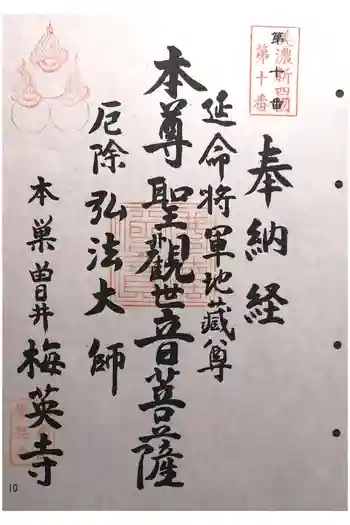 美濃新四國
第十番
第十番
奉納経
延命将軍地蔵尊
本尊聖觀世音菩薩
厄除弘法大師
本巣曽井
梅英寺
10